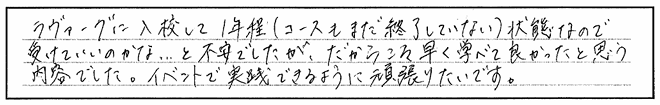 ラヴァーグに入校して1年程(コースもまだ終了していない)状態なので
受けていいのかな…と不安でしたが、だからこそ早く学べて良かったと思う
内容でした。イベントで実践できるように頑張りたいです。